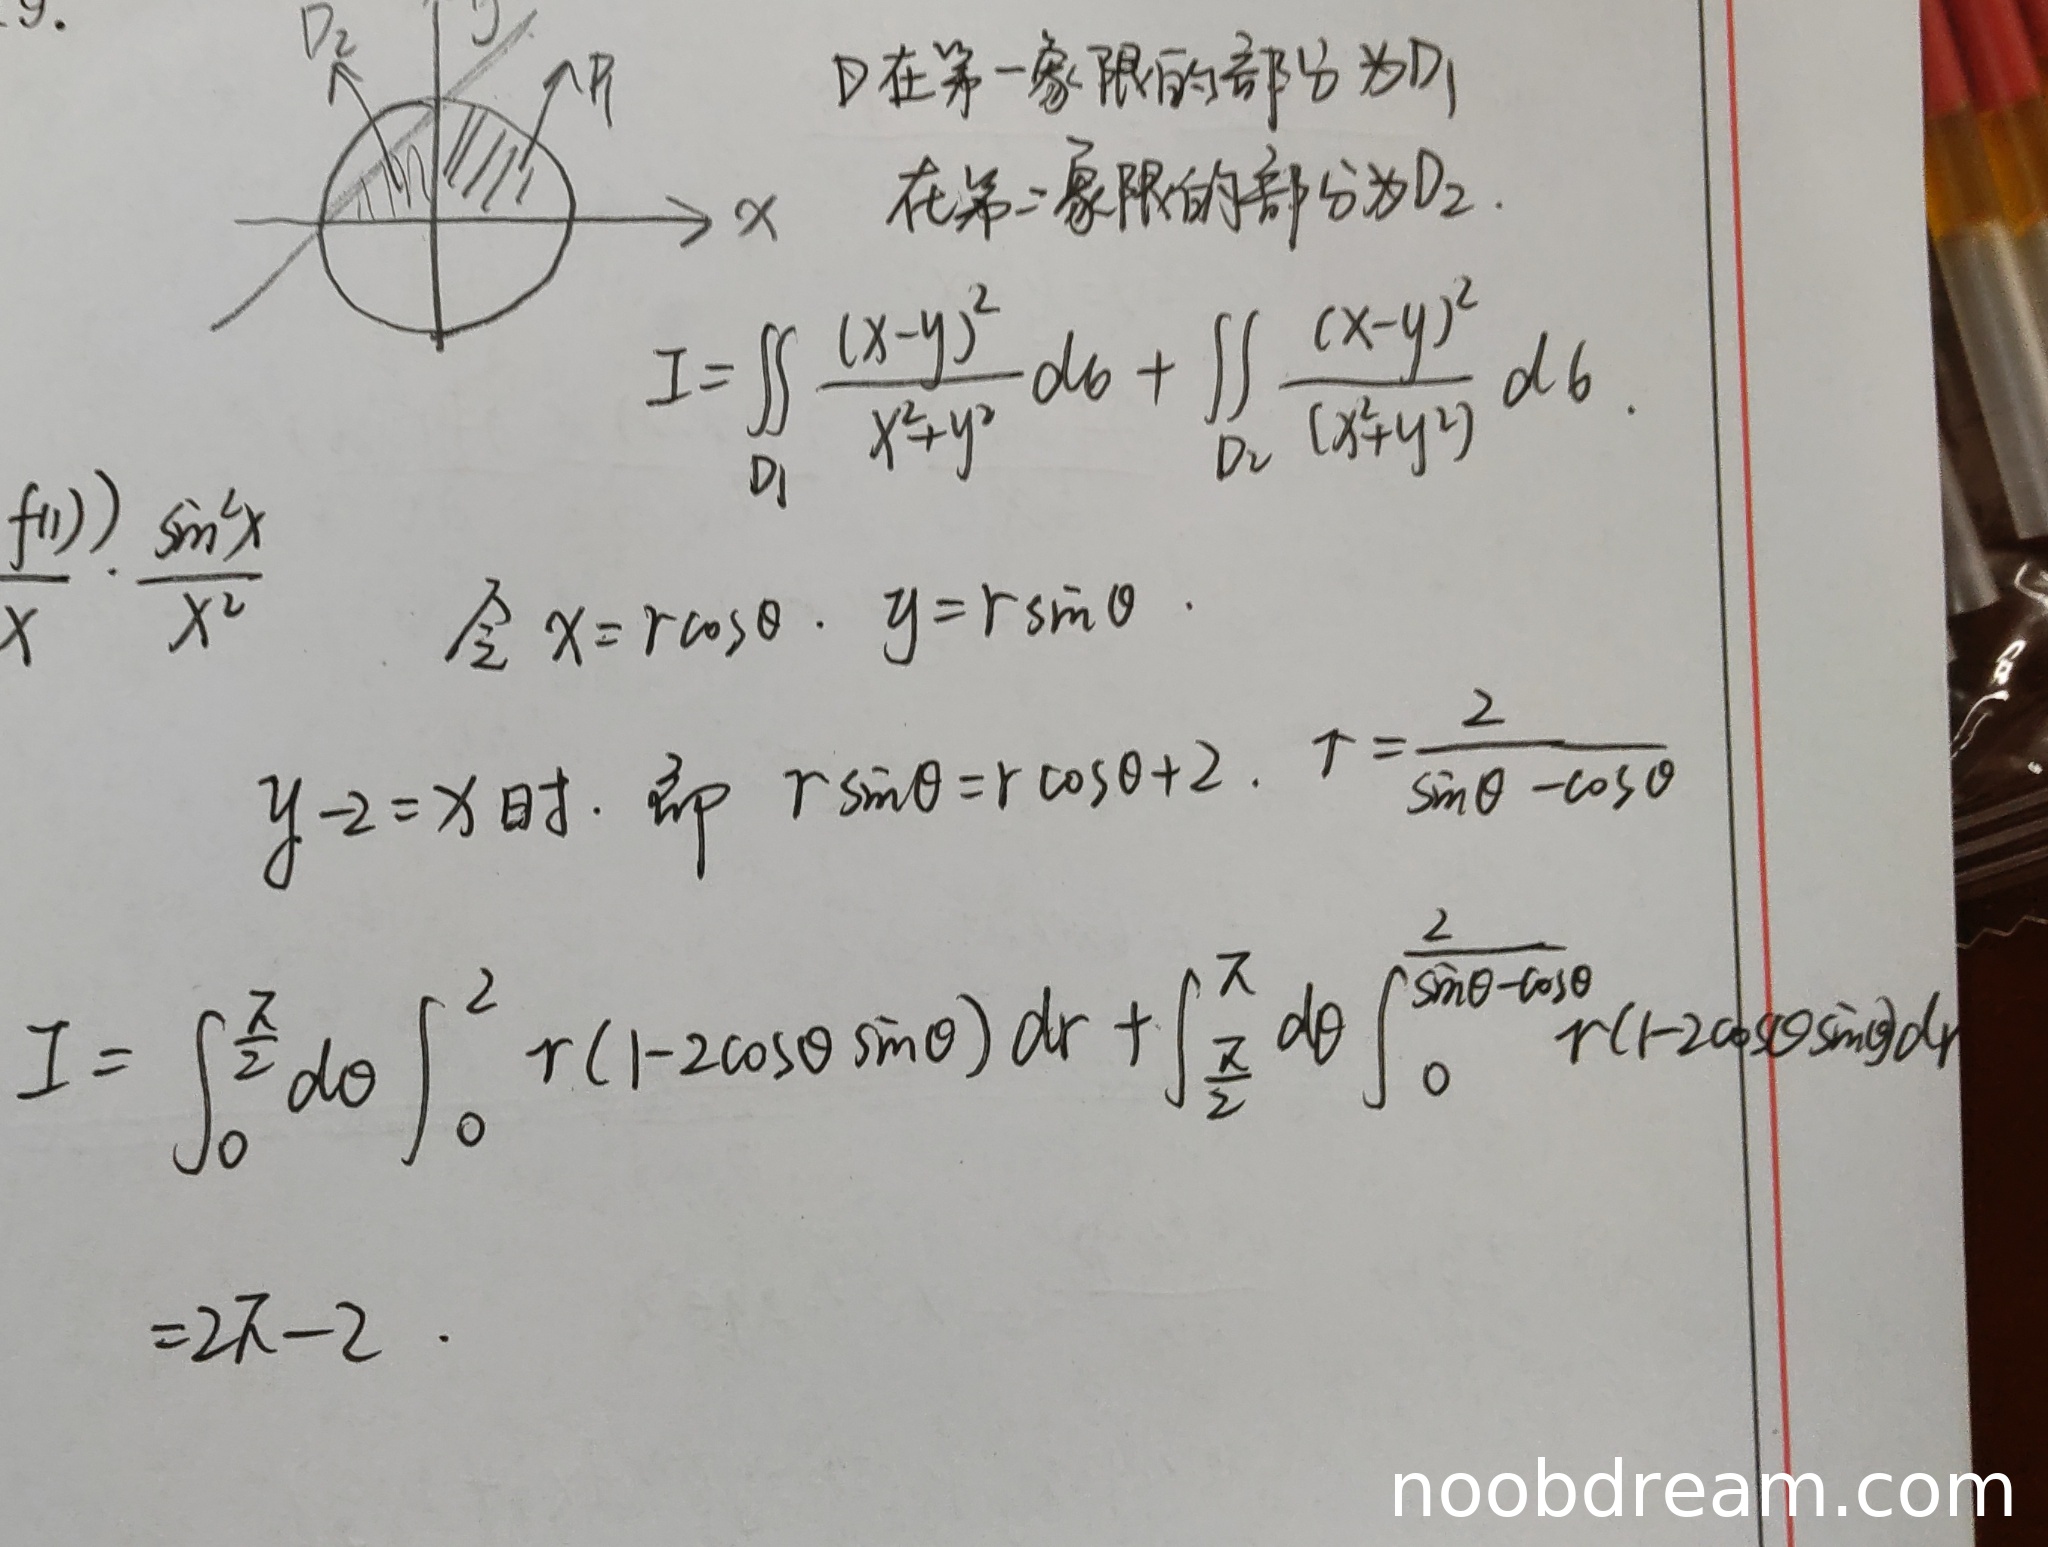 9.
D₂ y D₁
x
D在第一象限的部分为D₁
在第二象限的部分为D₂.
I = ∬_{D₁} (x-y)²/(x²+y²) dσ + ∬_{D₂} (x-y)²/(x²+y²) dσ.
f(1))/x · sin²x/x²
令 x = r cosθ. y = r sinθ.
y-2 = x 时. 即 r sinθ = r cosθ + 2. r = 2/(sinθ - cosθ)
I = ∫₀^{π/2} dθ ∫₀² r(1-2cosθ sinθ) dr + ∫_{π/2}^{π} dθ ∫₀^{2/(sinθ-cosθ)} r(1-2cosθ sinθ) dr
= 2π - 2.
noobdream.com